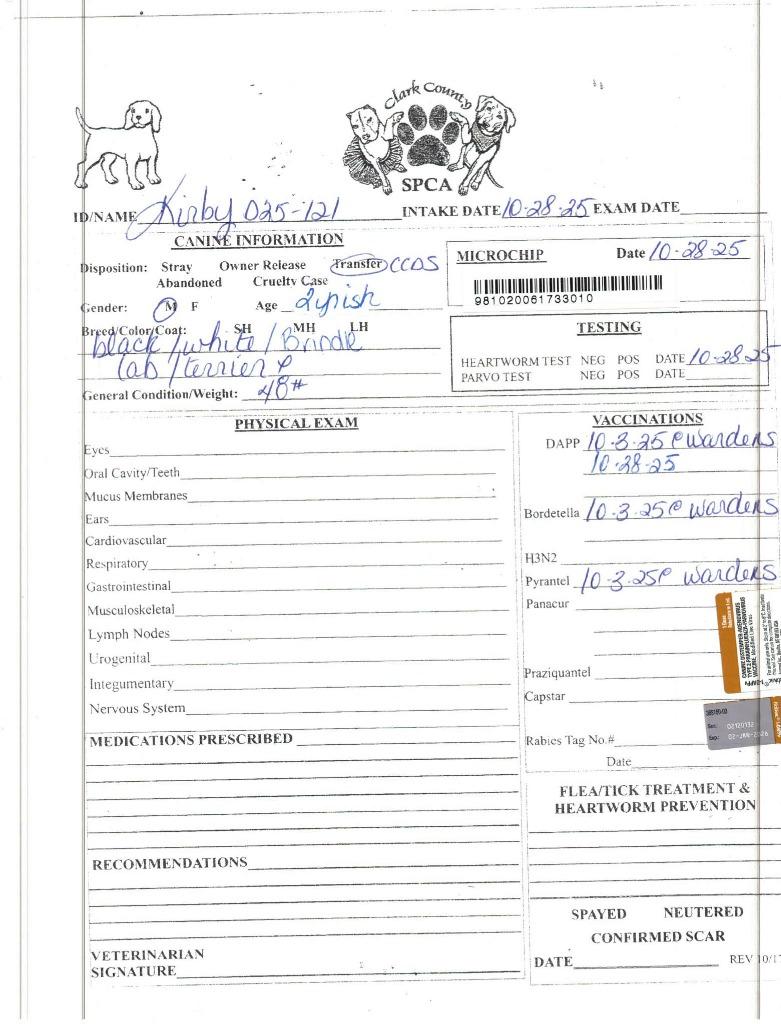 Clark County
SPCA
ID/NAME Kirby D25-121 INTAKE DATE 10-28-25 EXAM DATE
CANINE INFORMATION
Disposition: Stray Owner Release Transfer CCDS
Abandoned Cruelty Case
Gender: M F Age 2yrish
Breed/Color/Coat: SH MH LH
black/white/Brindle
Lab/terrier
General Condition/Weight: 48#
MICROCHIP Date 10-28-25
981020061733010
TESTING
HEARTWORM TEST NEG POS DATE 10-28-25
PARVO TEST NEG POS DATE
PHYSICAL EXAM
Eyes
Oral Cavity/Teeth
Mucus Membranes
Ears
Cardiovascular
Respiratory
Gastrointestinal
Musculoskeletal
Lymph Nodes
Urogenital
Integumentary
Nervous System
MEDICATIONS PRESCRIBED
RECOMMENDATIONS
VETERINARIAN
SIGNATURE
VACCINATIONS
DAPP 10-3-25 @ wardens
10-28-25
Bordetella 10-3-25 @ wardens
H3N2
Pyrantel 10-3-25 @ wardens
Panacur
CANINE DISTEMPER-ADENOVIRUS
TYPE 2-PARAINFLUENZA-PARVOVIRUS
VACCINE
Praziquantel
Capstar
Ser: 02120132
Exp: 02-JAN-2026
Rabies Tag No.#
Date
FLEA/TICK TREATMENT &
HEARTWORM PREVENTION
SPAYED NEUTERED
CONFIRMED SCAR
DATE REV 10/17